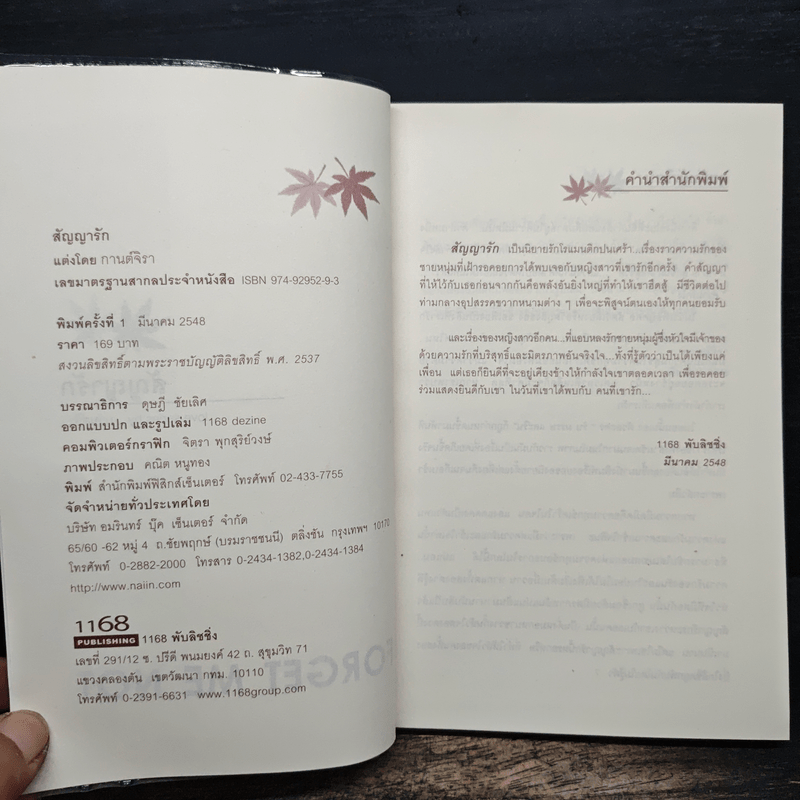 สัญญารัก
แต่งโดย กานต์จิรา
เลขมาตรฐานสากลประจำหนังสือ ISBN 974-92952-9-3
พิมพ์ครั้งที่ 1 มีนาคม 2548
ราคา 169 บาท
สงวนลิขสิทธิ์ตามพระราชบัญญัติลิขสิทธิ์ พ.ศ. 2537
บรรณาธิการ ดุษฎี ชัยเลิศ
ออกแบบปก และรูปเล่ม 1168 dezine
คอมพิวเตอร์กราฟิก จิตรา พุกสุริย์วงษ์
ภาพประกอบ คณิต หนูทอง
พิมพ์ สำนักพิมพ์ฟิสิกส์เซ็นเตอร์ โทรศัพท์ 02-433-7755
จัดจำหน่ายทั่วประเทศโดย
บริษัท อมรินทร์ บุ๊ค เซ็นเตอร์ จำกัด
65/60 -62 หมู่ 4 ถ.ชัยพฤกษ์ (บรมราชชนนี) ตลิ่งชัน กรุงเทพฯ 10170
โทรศัพท์ 0-2882-2000 โทรสาร 0-2434-1382,0-2434-1384
http://www.naiin.com
1168
PUBLISHING 1168 พับลิชชิ่ง
เลขที่ 291/12 ซ. ปรีดี พนมยงค์ 42 ถ. สุขุมวิท 71
แขวงคลองตัน เขตวัฒนา กทม. 10110
โทรศัพท์ 0-2391-6631 www.1168group.com
คำนำสำนักพิมพ์
สัญญารัก เป็นนิยายรักโรแมนติกปนเศร้า...เรื่องราวความรักของ
ชายหนุ่มที่เฝ้ารอคอยการได้พบเจอกับหญิงสาวที่เขารักอีกครั้ง คำสัญญา
ที่ให้ไว้กับเธอก่อนจากกันคือพลังอันยิ่งใหญ่ที่ทำให้เขาฮึดสู้ มีชีวิตต่อไป
ท่ามกลางอุปสรรคขวากหนามต่าง ๆ เพื่อจะพิสูจน์ตนเองให้ทุกคนยอมรับ
และเรื่องของหญิงสาวอีกคน...ที่แอบหลงรักชายหนุ่มผู้ซึ่งหัวใจมีเจ้าของ
ด้วยความรักที่บริสุทธิ์และมิตรภาพอันจริงใจ...ทั้งที่รู้ตัวว่าเป็นได้เพียงแค่
เพื่อน แต่เธอก็ยินดีที่จะอยู่เคียงข้างให้กำลังใจเขาตลอดเวลา เพื่อรอคอย
ร่วมแสดงยินดีกับเขา ในวันที่เขาได้พบกับ คนที่เขารัก...
1168 พับลิชชิ่ง
มีนาคม 2548